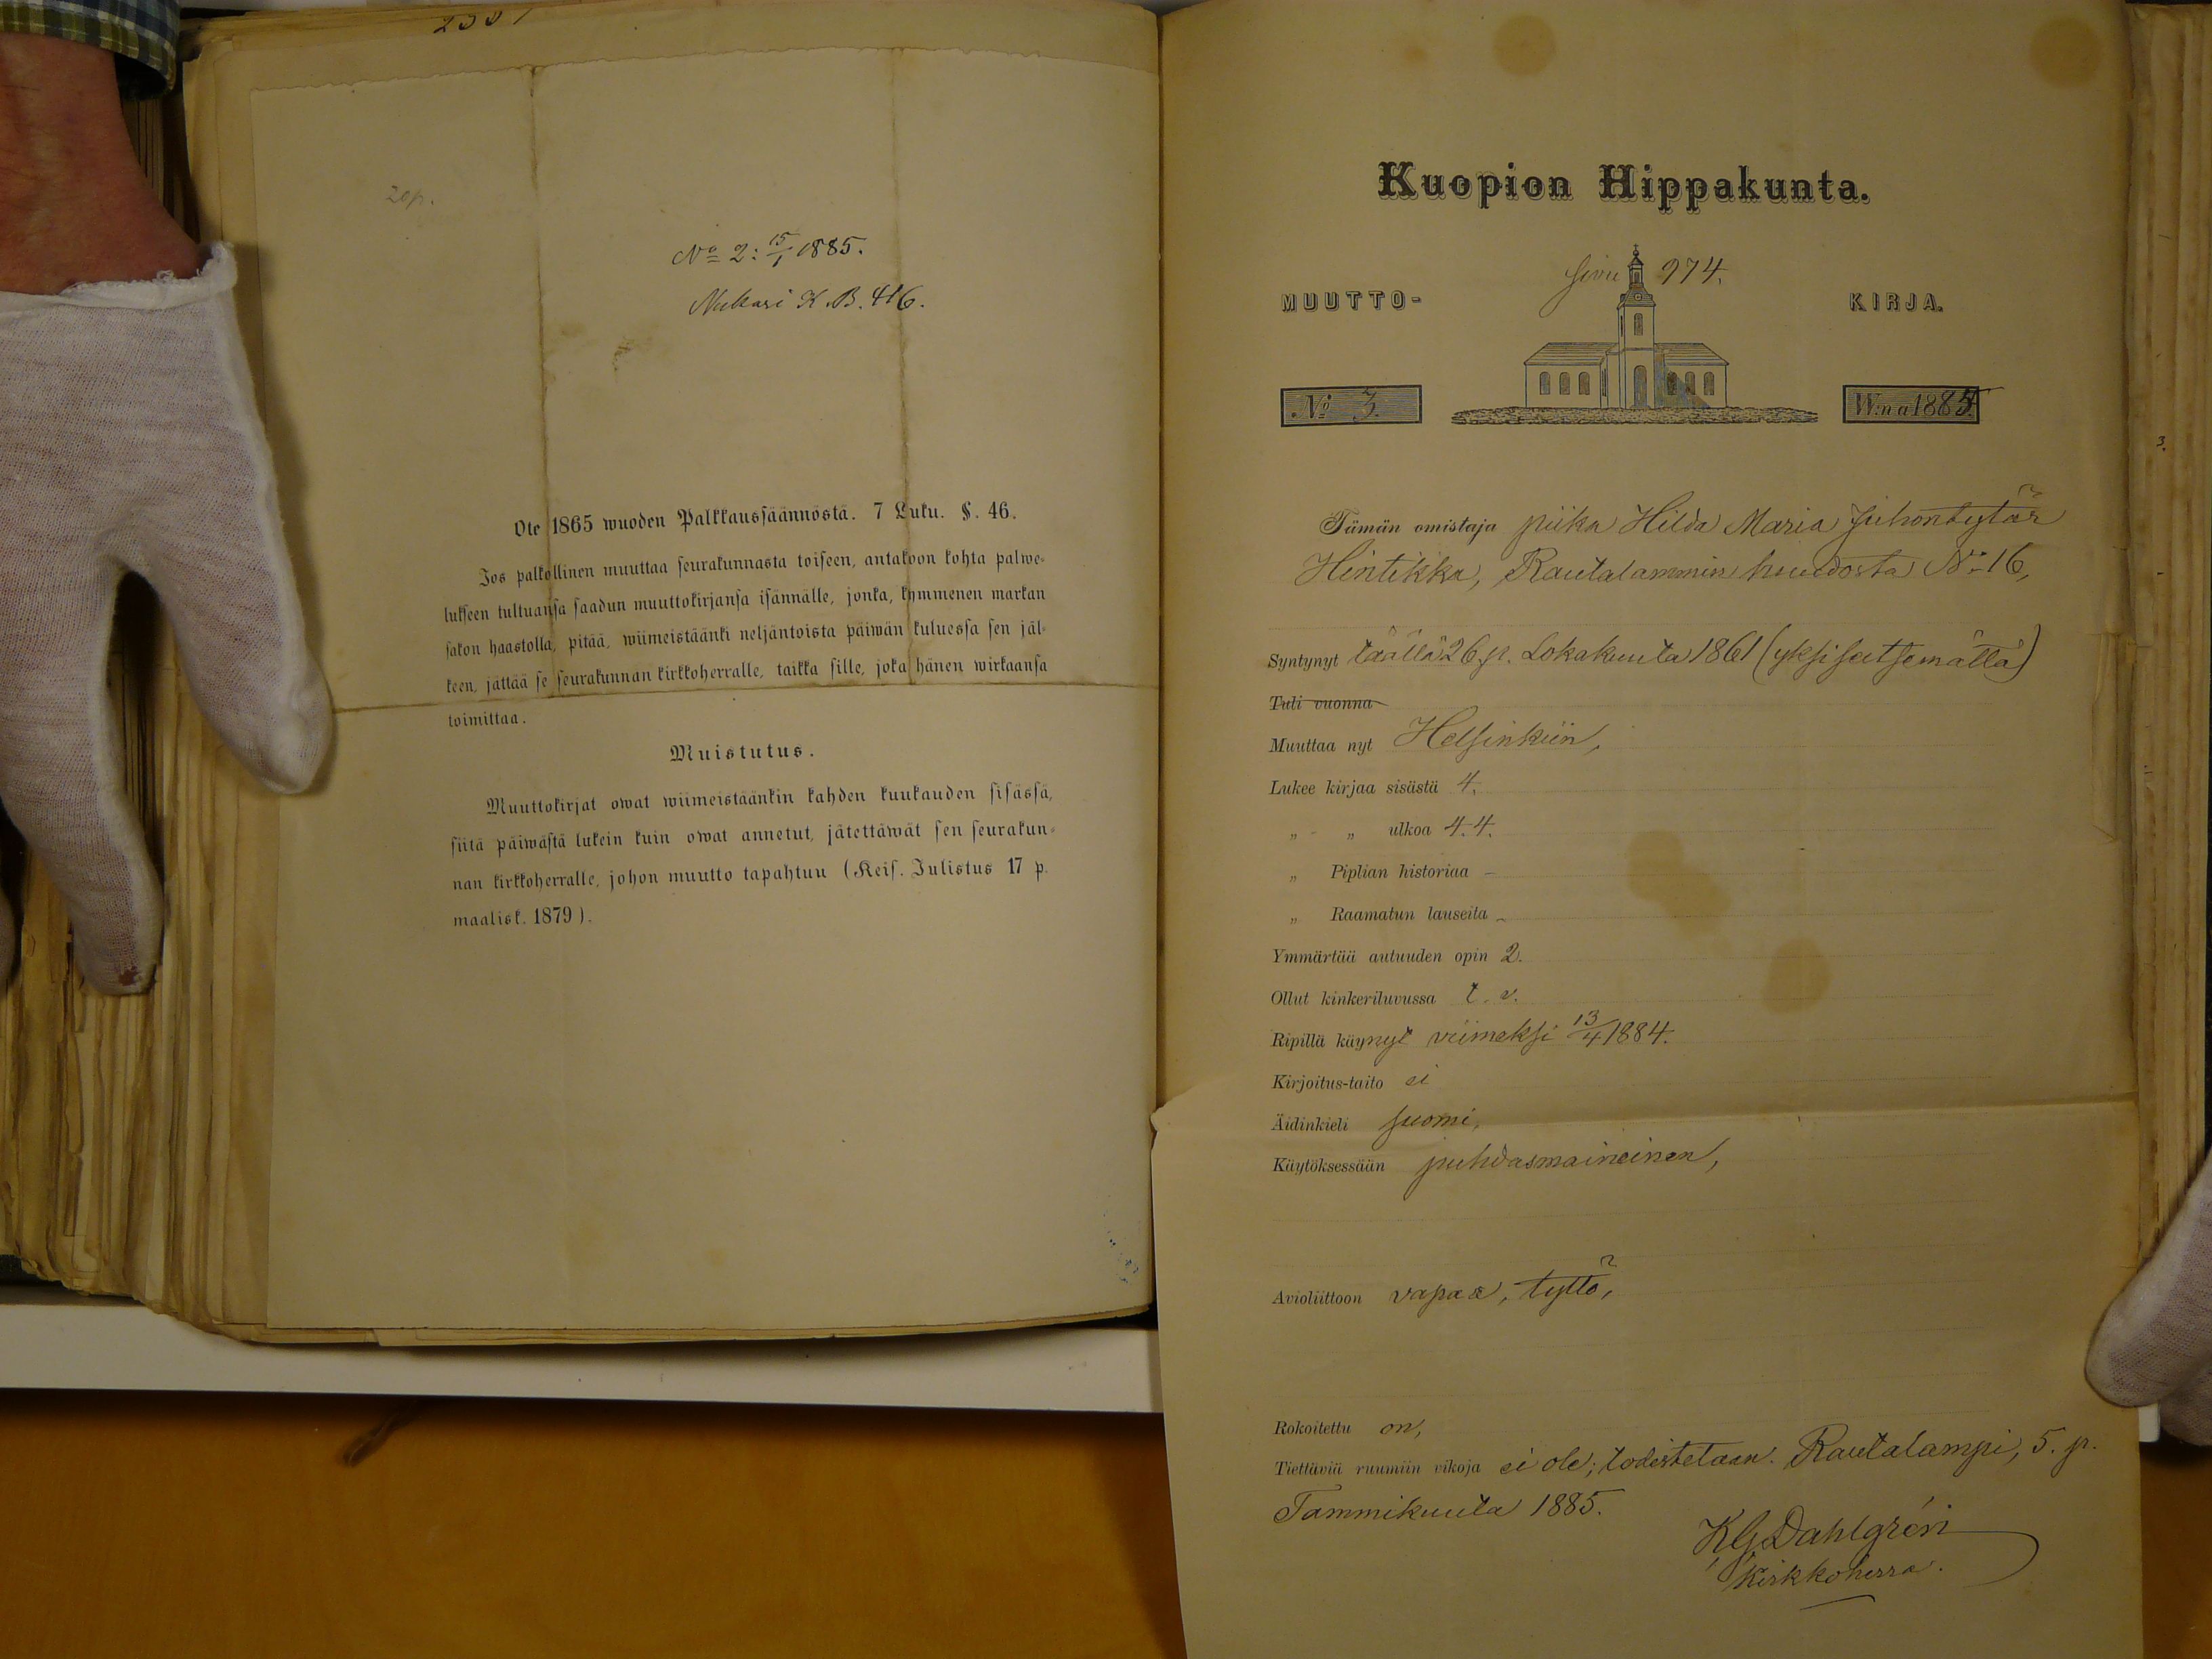 20p.
No 2: 15/1 1885.
K. B. 416.
Ote 1865 wuoden Palkkaussäännöstä. 7 Luku. §. 46.
Jos palkollinen muuttaa seurakunnasta toiseen, antakoon kohta palwe-
lukseen tultuansa saadun muuttokirjansa isännälle, jonka, kymmenen markan
sakon haastolla, pitää, wiimeistäänki neljäntoista päiwän kuluessa sen jäl-
keen, jättää se seurakunnan kirkkoherralle, taikka sille, joka hänen wirkaansa
toimittaa.
Muistutus.
Muuttokirjat owat wiimeistäänkin kahden kuukauden sisässä,
siitä päiwästä lukein kuin owat annetut, jätettäwät sen seurakun-
nan kirkkoherralle, johon muutto tapahtuu (Keis. Julistus 17 p.
maalisk. 1879).
Kuopion Hippakunta.
sivu 974.
MUUTTO- KIRJA.
No 3. W:na 1885.
Tämän omistaja piika Hilda Maria Juhontytär
Hintikka, Rautalammin huudosta No 16,
Syntynyt täällä 26 p. Lokakuuta 1861 (yksiseitsemättä)
Tuli vuonna
Muuttaa nyt Helsinkiin,
Lukee kirjaa sisästä 4.
„ „ ulkoa 4.4.
„ Piplian historiaa –
„ Raamatun lauseita –
Ymmärtää autuuden opin 2.
Ollut kinkeriluvussa t. v.
Ripillä käynyt viimeksi 13/4 1884.
Kirjoitus-taito ei
Äidinkieli suomi,
Käytöksessään puhdasmaineinen,
Avioliittoon vapaa, tyttö,
Rokoitettu on,
Tiettäviä ruumiin vikoja ei ole; todistetaan. Rautalampi, 5. p.
Tammikuuta 1885.
KG Dahlgrén
Kirkkoherra.
3.